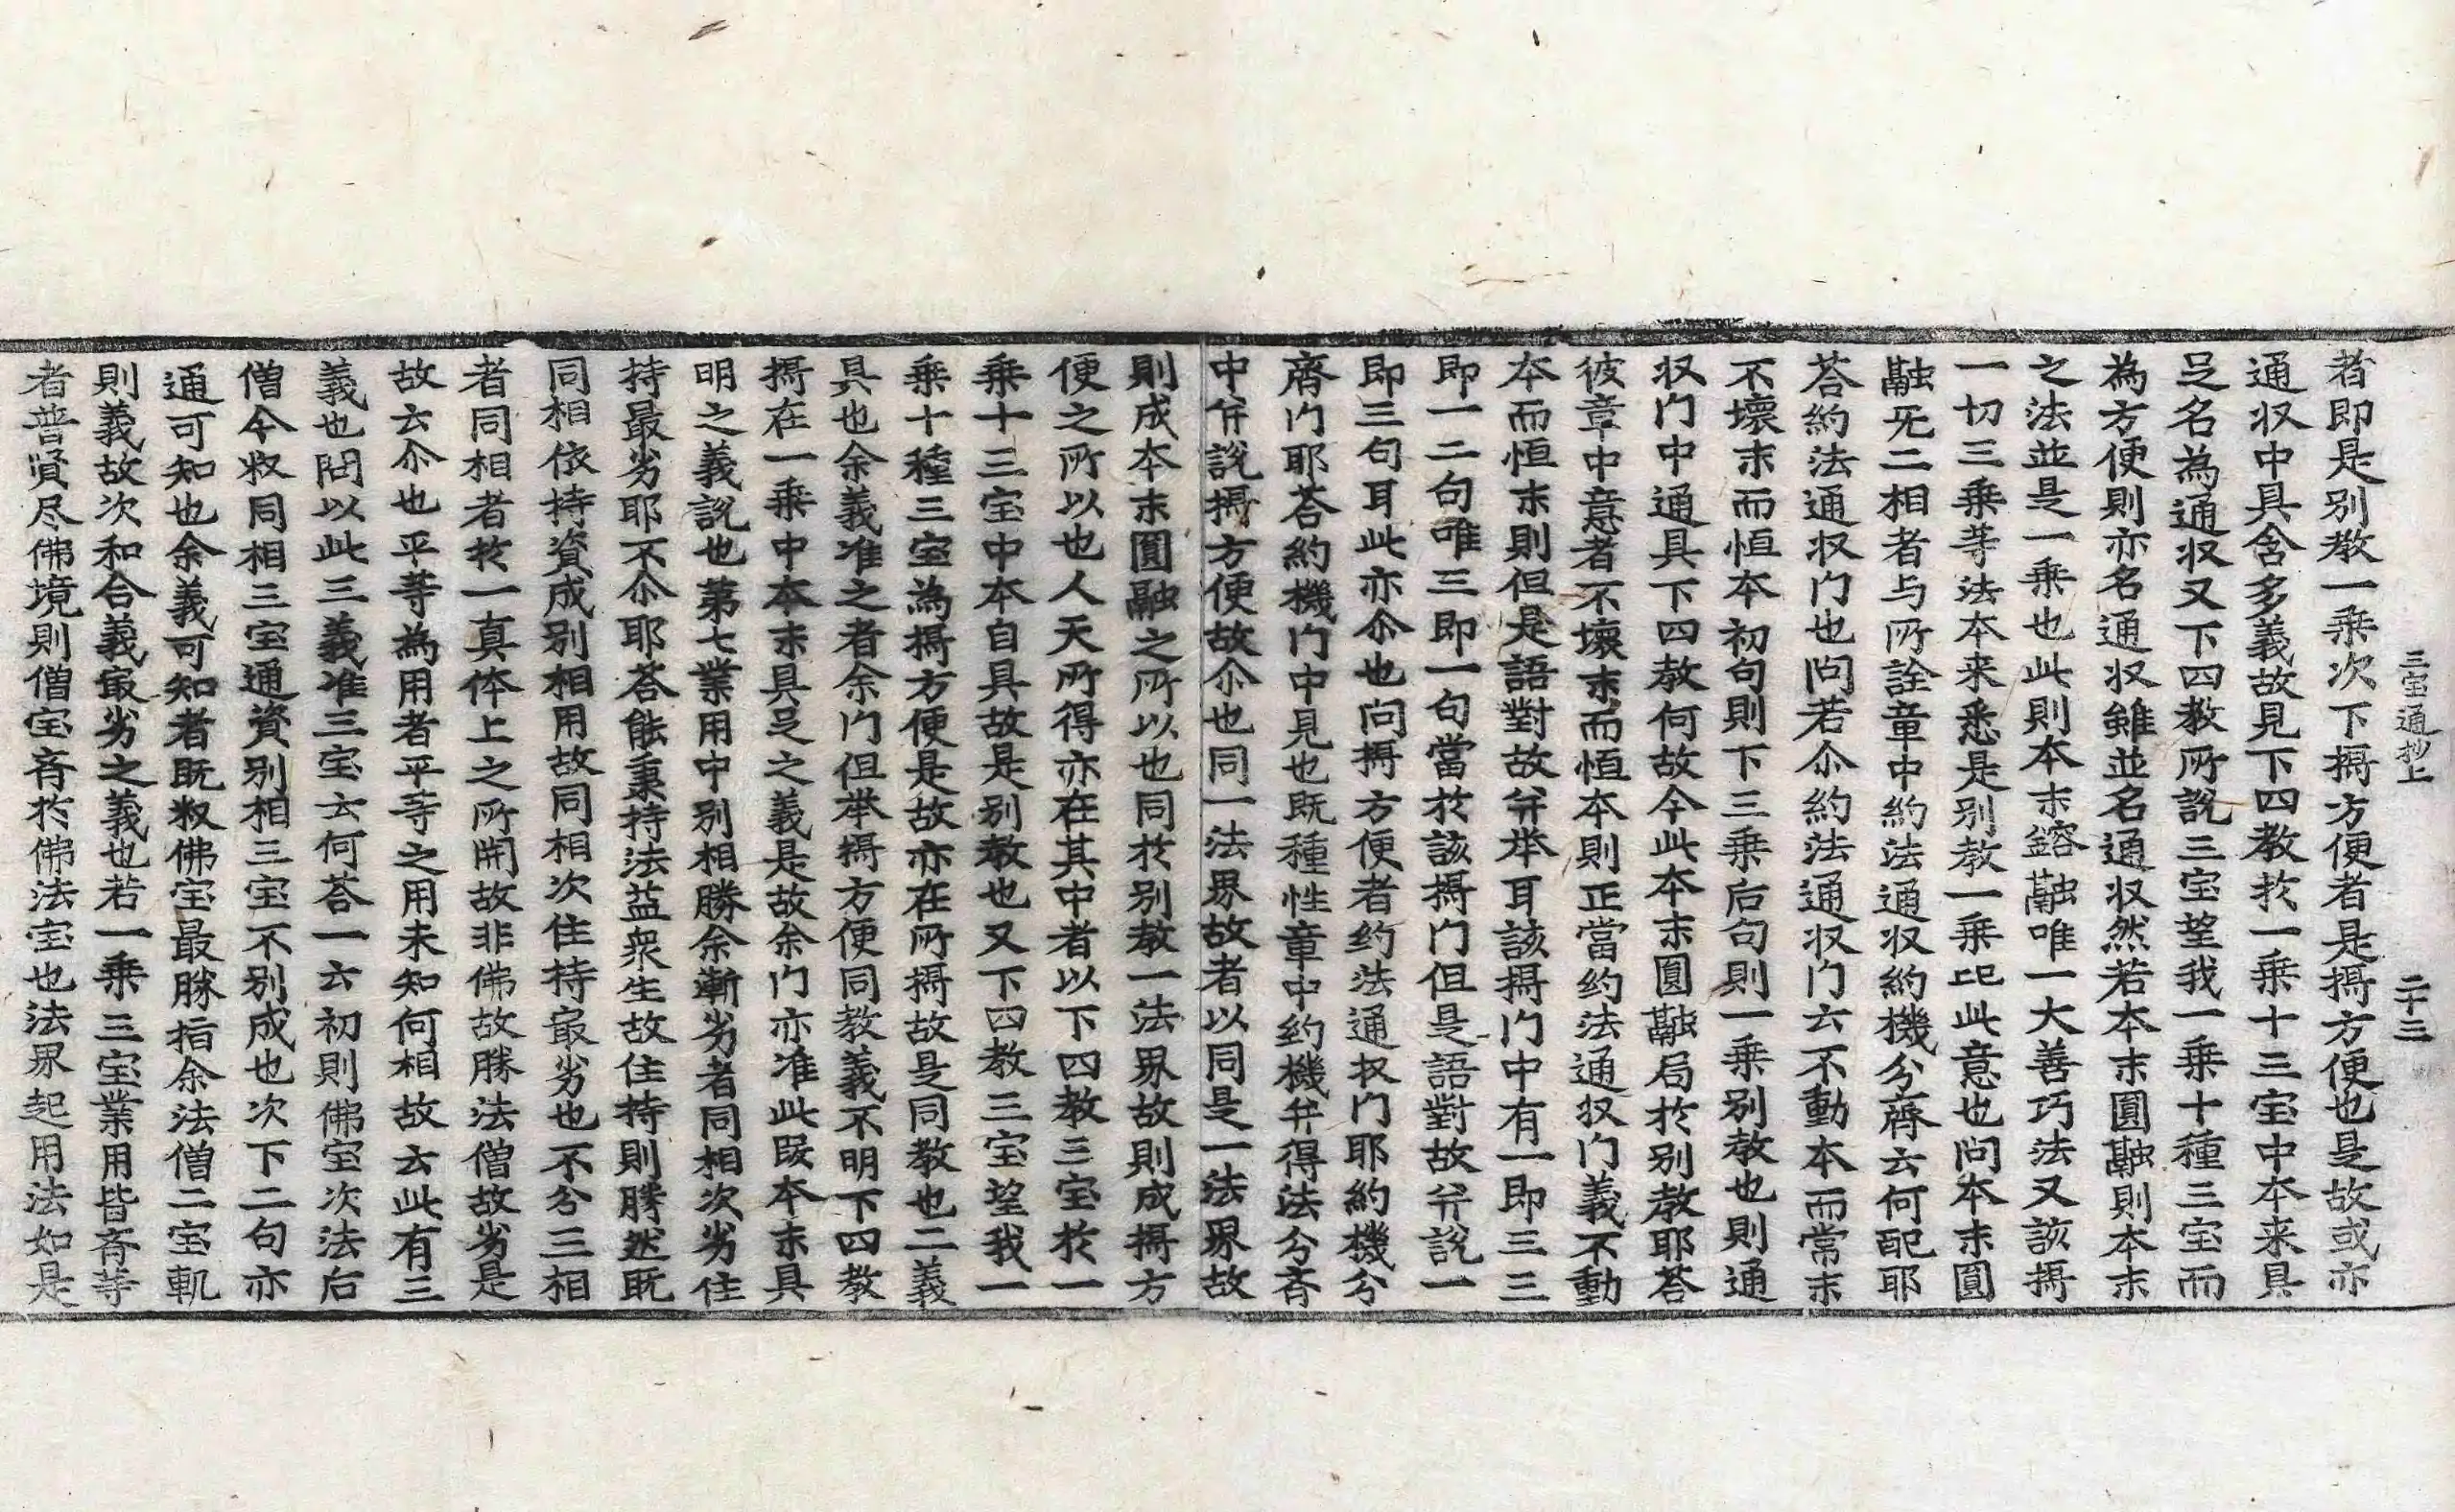 三宝通抄上 二十三
者即是別教一乗次下攝方便者是攝方便也是故或亦
通収中具含多義故見下四教扵一乗十三宝中本来具
足名為通収又下四教所說三宝望我一乗十種三宝而
為方便則亦名通収雖並名通収然若本末圓融則本末
之法並是一乗也此則本末鎔融唯一大善巧法又該攝
一切三乗等法本来悉是別教一乗比此意也问本末圓
融旡二相者与所詮章中約法通収約機分齊云何配耶
荅約法通収门也问若尒約法通収门云不動本而常末
不壞末而恒本初句則下三乗后句則一乗別教也則通
収门中通具下四教何故今此本末圓融局扵別教耶荅
彼章中意者不壞末而恒本則正當约法通収门義不動
本而恒末則但是語對故并举耳該攝门中有一即三三
即一二句唯三即一句當於該攝门但是語對故并說一
即三句耳此亦尒也问攝方便者约法通収门耶約機分
齊门耶荅約機门中見也既種性章中约機并得法分斉
中并說攝方便故尒也同一法界故者以同是一法界故
則成本末圓融之所以也同扵別教一法界故則成攝方
便之所以也人天所得亦在其中者以下四教三宝扵一
乗十三宝中本自具故是別教也又下四教三宝望我一
乗十種三宝為攝方便是故亦在所攝故是同教也二義
具也余義准之者余门但举攝方便同教義不明下四教
攝在一乗中本末具足之義是故余门亦准此叚本末具
明之義說也第七業用中別相勝余漸劣者同相次劣住
持最劣耶不尒耶荅能秉持法益衆生故住持則勝然既
同相依持資成別相用故同相次住持㝡劣也不分三相
者同相者扵一真体上之所開故非佛故勝法僧故劣是
故云尒也平等為用者平等之用未知何相故云此有三
義也問以此三義准三宝云何荅一云初則佛宝次法后
僧今収同相三宝通資別相三宝不別成也次下二句亦
通可知也余義可知者既収佛宝最勝指余法僧二宝軌
則義故次和合義㝡劣之義也若一乗三宝業用皆斉等
者普賢尽佛境則僧宝斉扵佛法宝也法界起用法如是